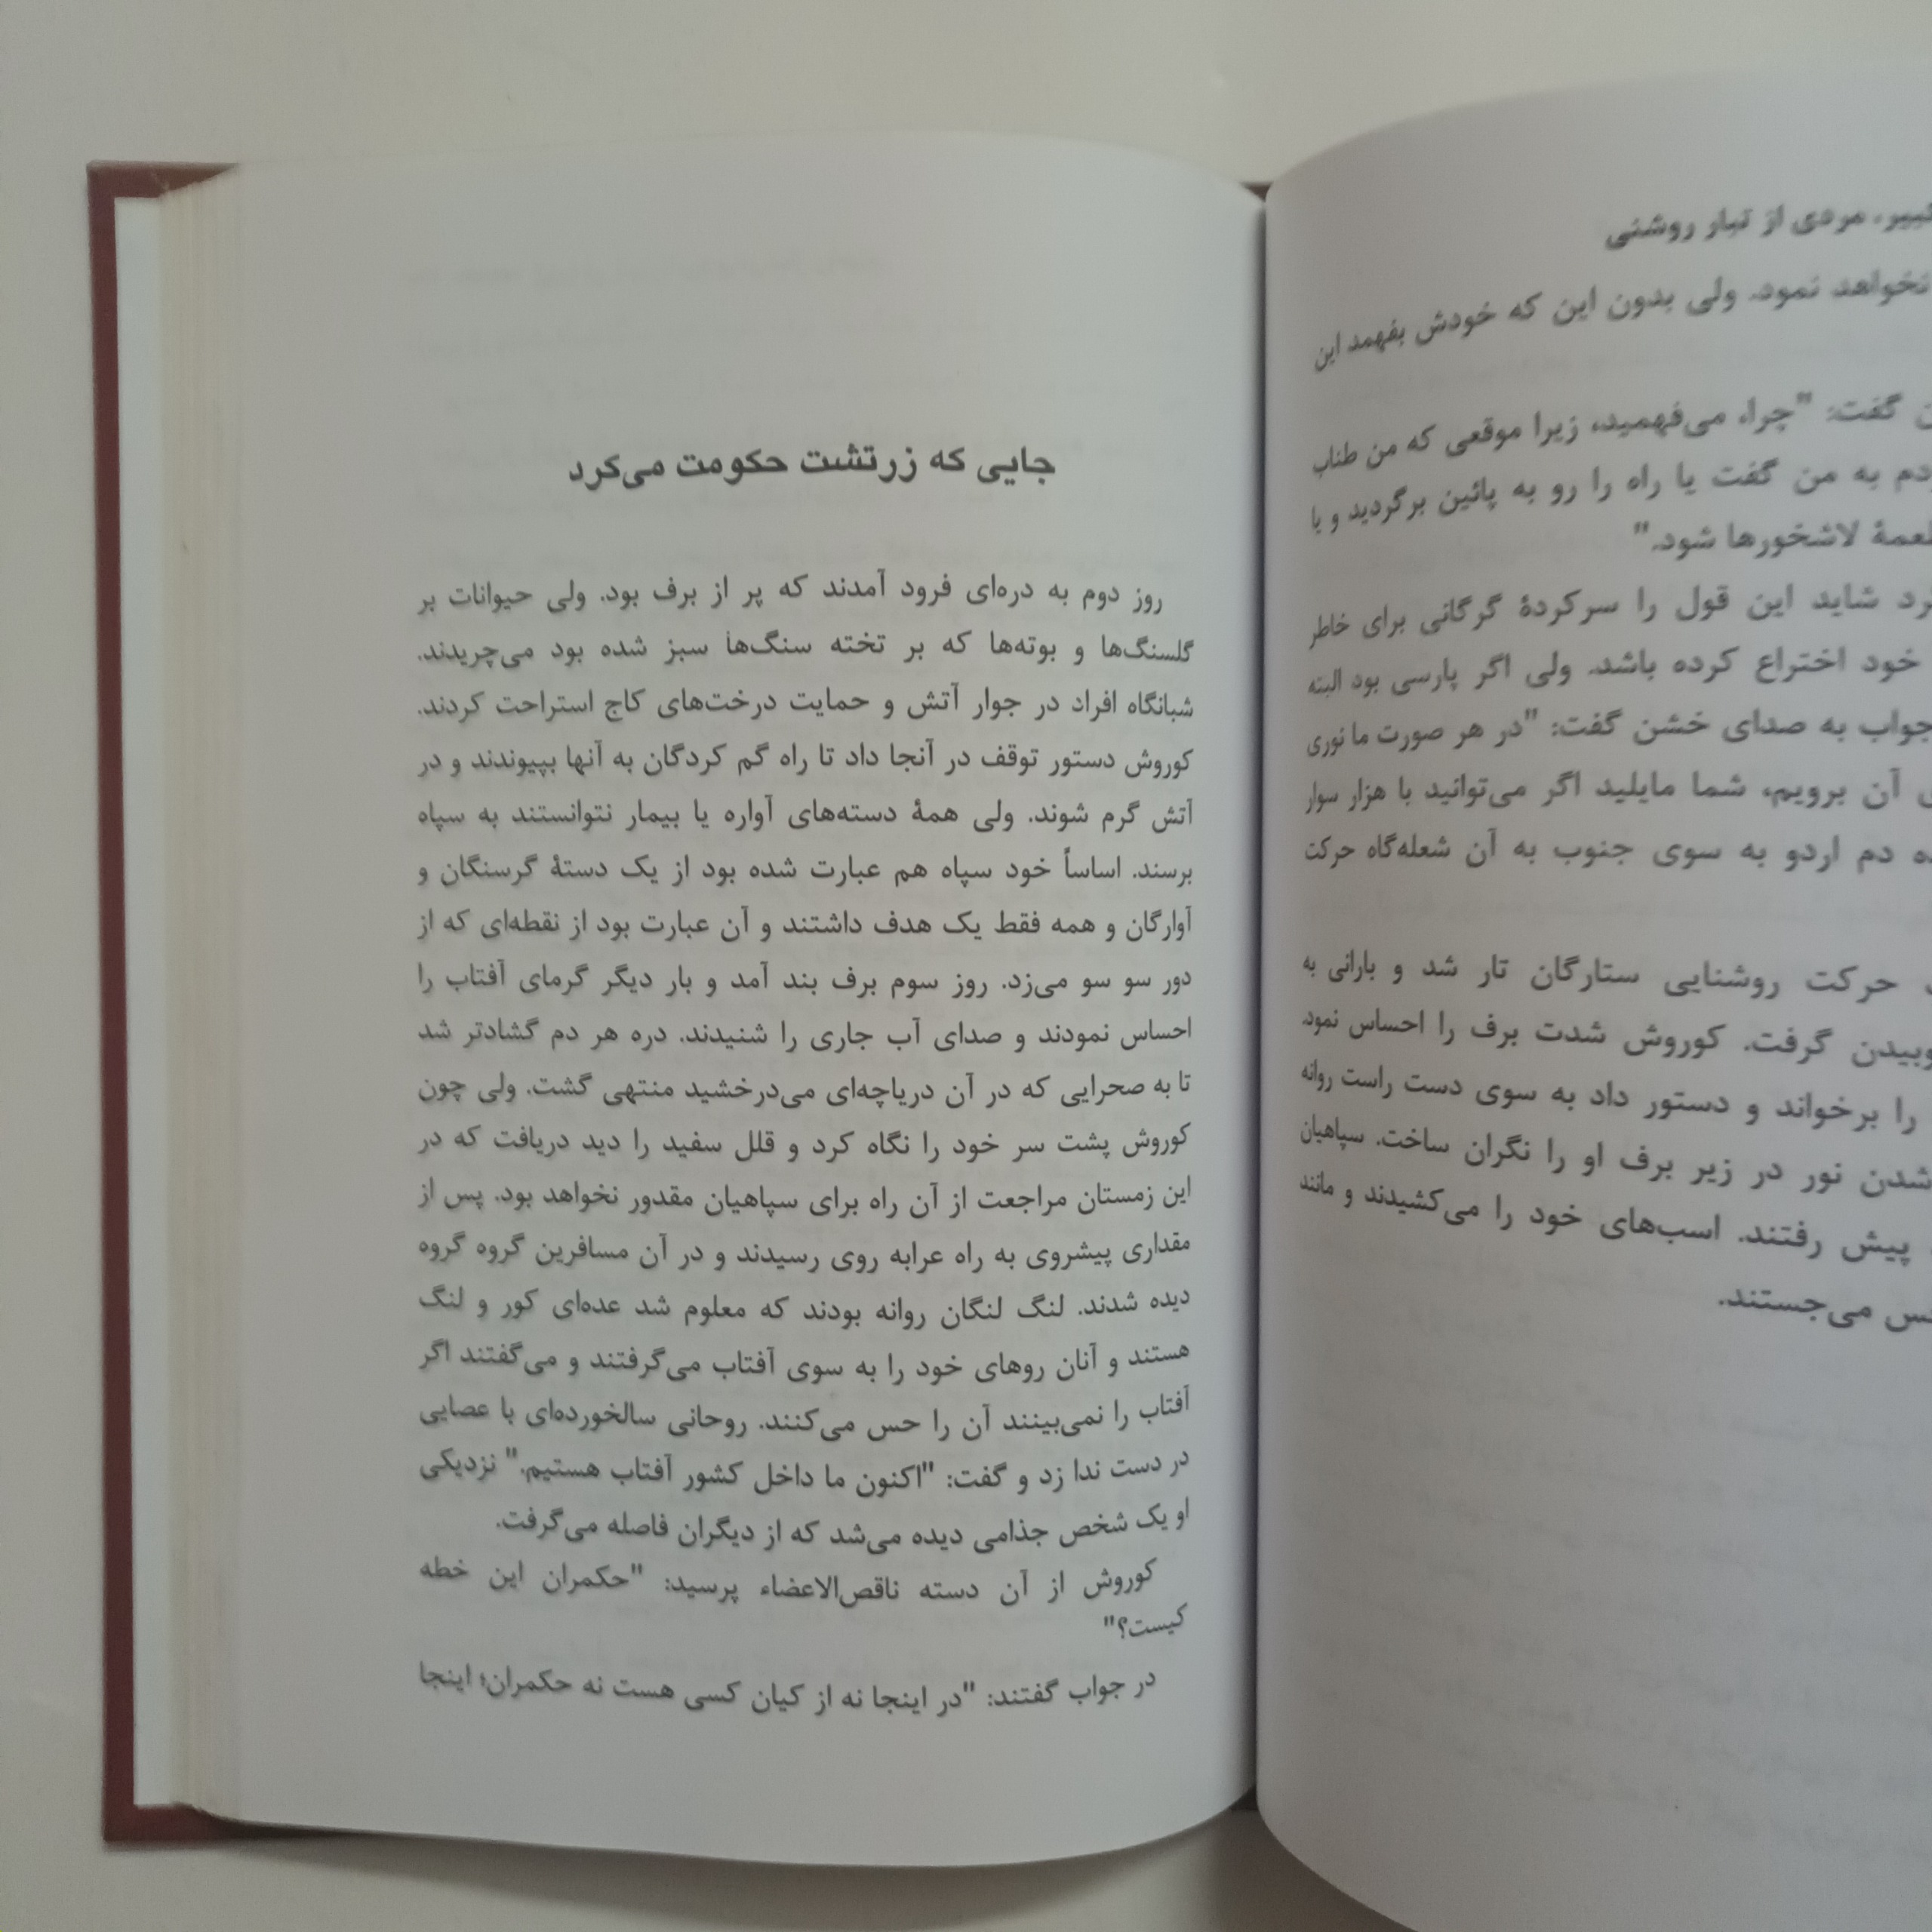 مردی از تبار روشنی
نخواهد نمود. ولی بدون این که خودش بفهمد این
گفت: "چرا، می‌فهمید، زیرا موقعی که من طناب
به من گفت یا راه را رو به پائین برگردید و یا
لاشخورها شود."
شاید این قول را سرکردهٔ گرگانی برای خاطر
خود اختراع کرده باشد. ولی اگر پارسی بود البته
جواب به صدای خشن گفت: "در هر صورت ما نوری
آن برویم، شما مایلید اگر می‌توانید با هزار سوار
دم اردو به سوی جنوب به آن شعله‌گاه حرکت
حرکت روشنایی ستارگان تار شد و بارانی به
گرفت. کوروش شدت برف را احساس نمود.
را برخواند و دستور داد به سوی دست راست روانه
شدن نور در زیر برف او را نگران ساخت. سپاهیان
پیش رفتند. اسب‌های خود را می‌کشیدند و مانند
می‌جستند.
جایی که زرتشت حکومت می‌کرد
روز دوم به دره‌ای فرود آمدند که پر از برف بود. ولی حیوانات بر
گلسنگ‌ها و بوته‌ها که بر تخته سنگ‌ها سبز شده بود می‌چریدند.
شبانگاه افراد در جوار آتش و حمایت درخت‌های کاج استراحت کردند.
کوروش دستور توقف در آنجا داد تا راه گم کردگان به آنها بپیوندند و در
آتش گرم شوند. ولی همهٔ دسته‌های آواره یا بیمار نتوانستند به سپاه
برسند. اساساً خود سپاه هم عبارت شده بود از یک دستهٔ گرسنگان و
آوارگان و همه فقط یک هدف داشتند و آن عبارت بود از نقطه‌ای که از
دور سو سو می‌زد. روز سوم برف بند آمد و بار دیگر گرمای آفتاب را
احساس نمودند و صدای آب جاری را شنیدند. دره هر دم گشادتر شد
تا به صحرایی که در آن دریاچه‌ای می‌درخشید منتهی گشت. ولی چون
کوروش پشت سر خود را نگاه کرد و قلل سفید را دید دریافت که در
این زمستان مراجعت از آن راه برای سپاهیان مقدور نخواهد بود. پس از
مقداری پیشروی به راه عرابه روی رسیدند و در آن مسافرین گروه گروه
دیده شدند. لنگ لنگان روانه بودند که معلوم شد عده‌ای کور و لنگ
هستند و آنان روهای خود را به سوی آفتاب می‌گرفتند و می‌گفتند اگر
آفتاب را نمی‌بینند آن را حس می‌کنند. روحانی سالخورده‌ای با عصایی
در دست ندا زد و گفت: "اکنون ما داخل کشور آفتاب هستیم." نزدیکی
او یک شخص جذامی دیده می‌شد که از دیگران فاصله می‌گرفت.
کوروش از آن دسته ناقص‌الاعضاء پرسید: "حکمران این خطه
کیست؟"
در جواب گفتند: "در اینجا نه از کیان کسی هست نه حکمران؛ اینجا